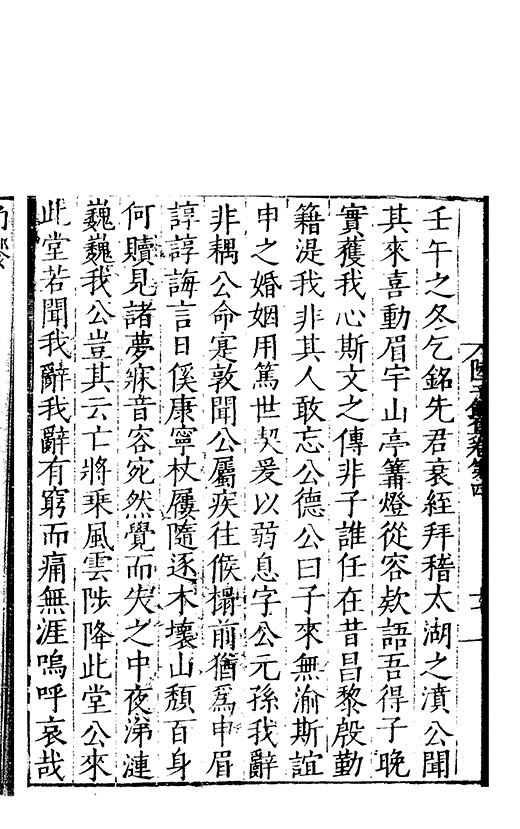 壬午之冬乞銘先君衰絰拜稽太湖之濆公聞
其來喜動眉宇山亭篝燈從容欵語吾得子晚
實獲我心斯文之傳非子誰任在昔昌黎殷勤
籍湜我非其人敢忘公德公曰子來無渝斯誼
申之婚姻用篤世契爰以弱息字公元孫我辭
非耦公命寔敦聞公屬疾往候榻前猶爲申眉
諄諄誨言曰俟康寧杖屨隨逐木壞山頹百身
何贖見諸夢寐音容宛然覺而失之中夜涕漣
巍巍我公豈其云亡將乘風雲陟降此堂公來
此堂若聞我辭我辭有窮而痛無涯嗚呼哀哉